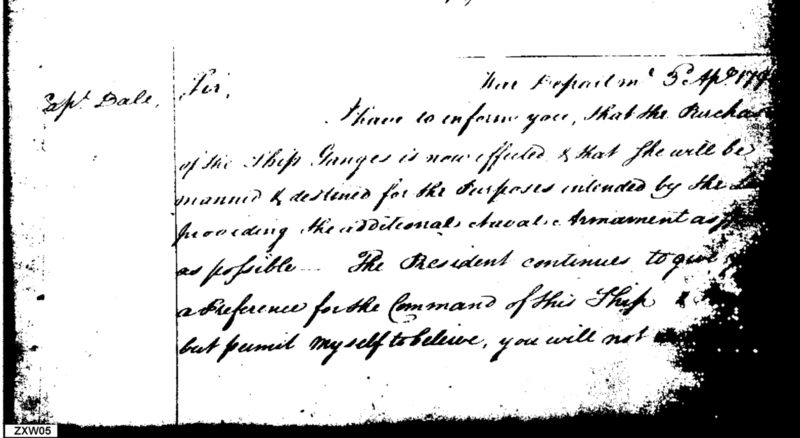 Capt. Dale,
Sir,
War Departmt 3d Apl. 179
I have to inform you, that the Purchas
of the Ship Ganges is now effected & that She will be
manned & destined for the Purposes intended by the
providing the additional Naval Armament as
as possible The President continues to give
a Preference for the Command of this Ship &
but permit myself to believe, you will not
ZXW05